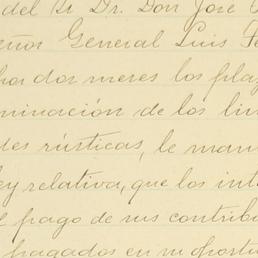 del Sr Dr. Don José
eñor General Luis Fe
por dos meses los pla
minación de los lin
des rústicas, le man
ey relativa, que los int
l pago de sus contrib
pagados en su oportu